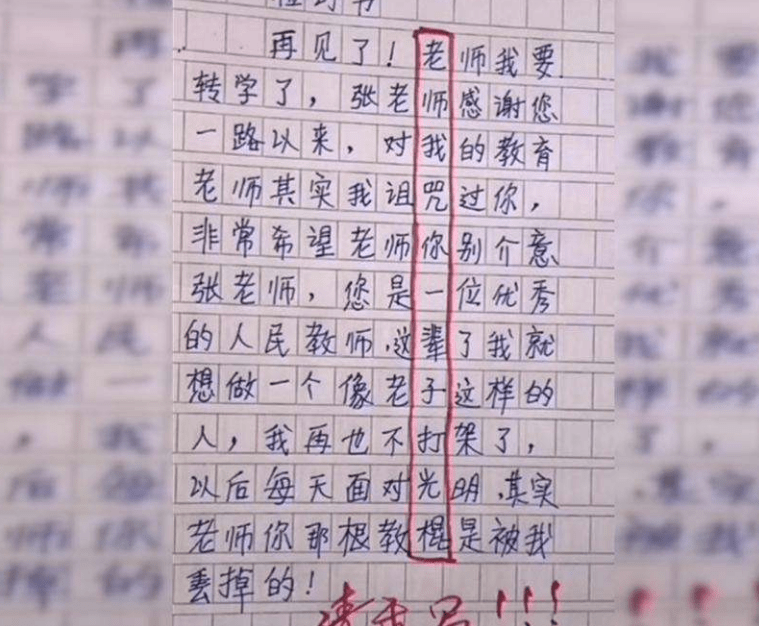 再见了！老师我要
转学了，张老师感谢您
一路以来，对我的教育
老师其实我诅咒过你，
非常希望老师你别介意
张老师，您是一位优秀
的人民教师.这辈了我就
想做一个像老子这样的
人，我再也不打架了，
以后每天面对光明.其实
老师你那根教棍是被我
丢掉的！
请重写!!!